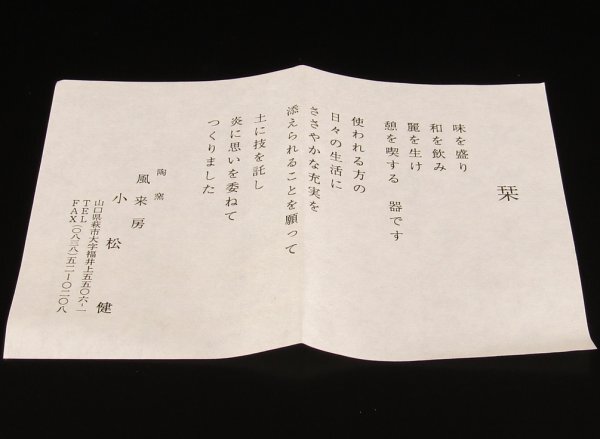 栞
味を盛り
和を飲み
麗を生け
憩を喫する 器です
使われる方の
日々の生活に
ささやかな充実を
添えられることを願って
土に技を託し
炎に思いを委ねて
つくりました
陶窯
風来房
小松 健
山口県萩市大字福井上五五〇六-一
TEL
FAX(〇八三八)五二-一〇二〇八